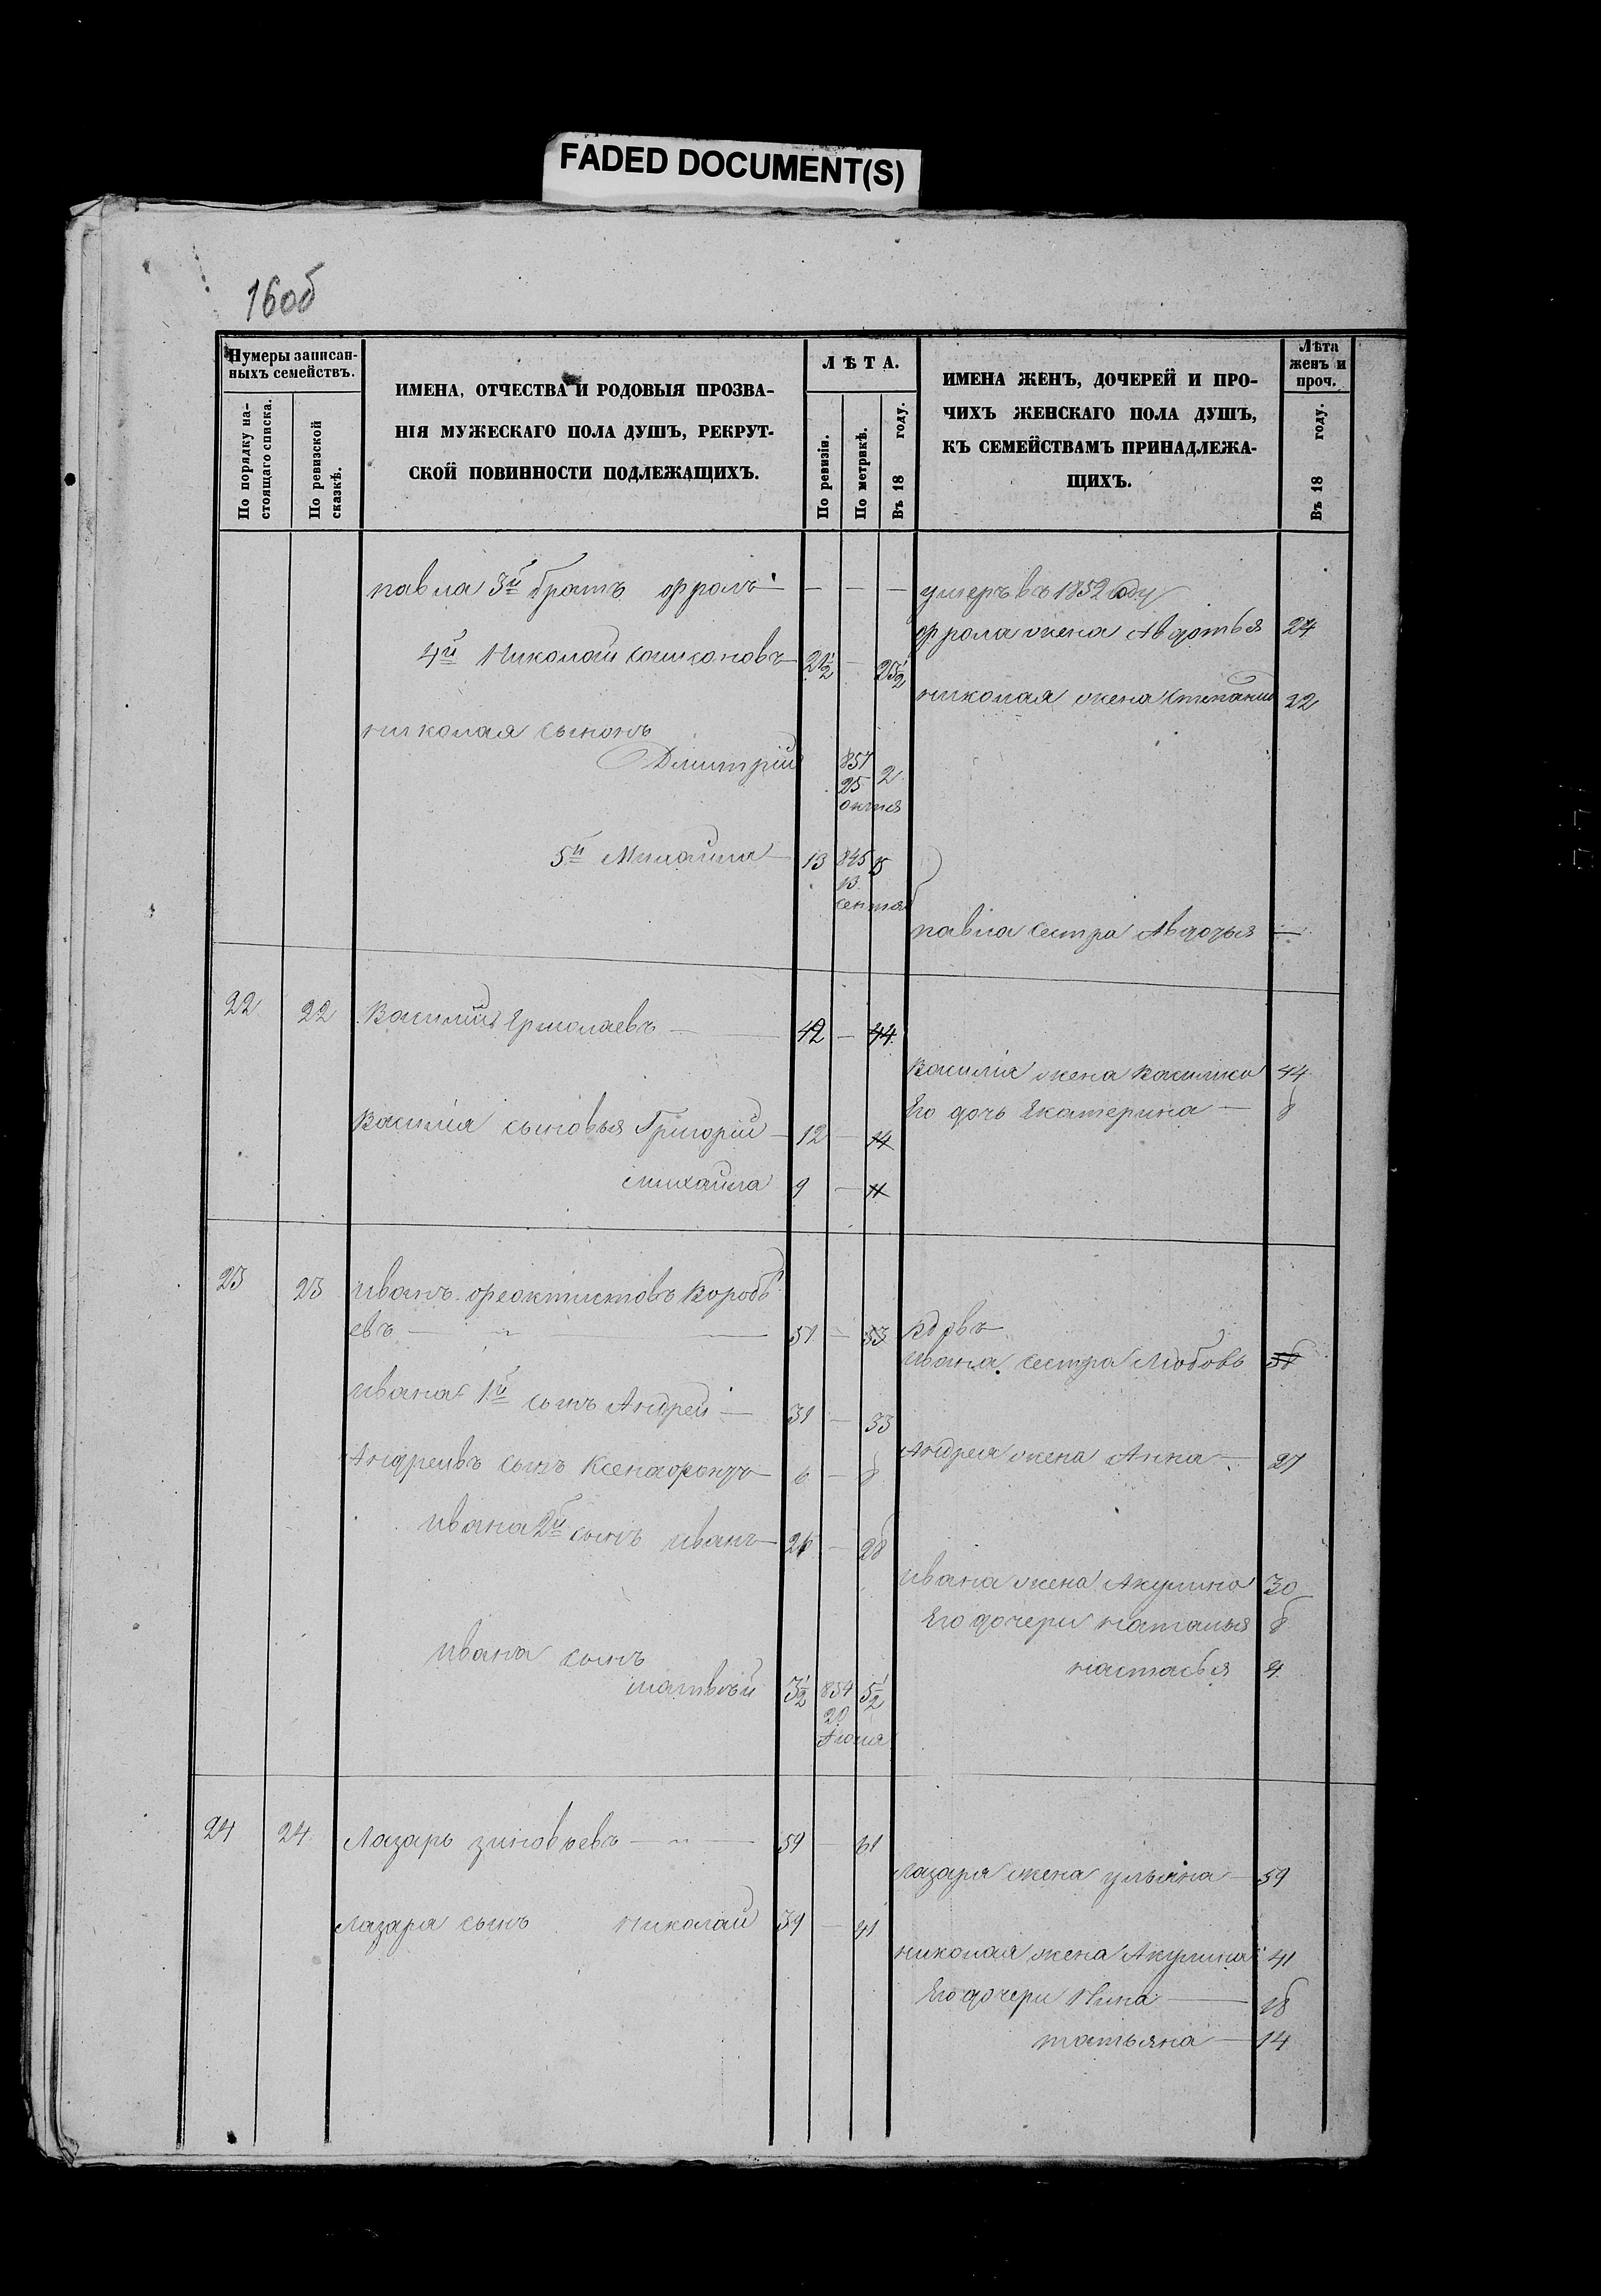 FADED DOCUMENT(S)
160б
Нумеры записан-
ныхъ семействъ.
По порядку на-
стоящаго списка.
По ревизской
сказкѣ.
ИМЕНА, ОТЧЕСТВА И РОДОВЫЯ ПРОЗВА-
НІЯ МУЖЕСКАГО ПОЛА ДУШЪ, РЕКРУТ-
СКОЙ ПОВИННОСТИ ПОДЛЕЖАЩИХЪ.
ЛѢТА.
По ревизіи.
По метрикѣ.
Въ 18 году.
ИМЕНА ЖЕНЪ, ДОЧЕРЕЙ И ПРО-
ЧИХЪ ЖЕНСКАГО ПОЛА ДУШЪ,
КЪ СЕМЕЙСТВАМЪ ПРИНАДЛЕЖА-
ЩИХЪ.
Лѣта
женъ и
проч.
Въ 18 году.
павла 3й братъ фролъ — — — — умеръ въ 1852 году
фрола жена Авдотья 24
4й Николай 21½ — 23½
николая жена Степанида 22
николая сынъ
Димитрій 857 2
25
октя
5й Михайла — 13 845 15
13
сентя
павла сестра Авдотья —
22 22 Василій Ермолаевъ — 42 — 44
Василія жена Василиса 44
Его дочь Екатерина — 8
Василія сыновья Григорій — 12 — 14
михайла 9 — 11
23 23 иванъ феоктистовъ Вороб
евъ — 51 — 53
вдова
ивана сестра Любовь 58
ивана 1й сынъ Андрей — 31 — 33
Андрея жена Анна — 27
Андреявъ сынъ Ксенофонтъ — 6 — 8
ивана 2й сынъ иванъ — 26 — 28
ивана жена Акулина 30
Его дочери наталья 8
настасья 4
ивана сынъ
матвѣй 3½ 854 5½
Іюня
24 24 Лазарь зиновьевъ — 59 — 61
лазаря жена ульяна — 59
Лазаря сынъ николай 39 — 41
николая жена Акулина 41
Его дочери Нина — 18
татьяна — 14